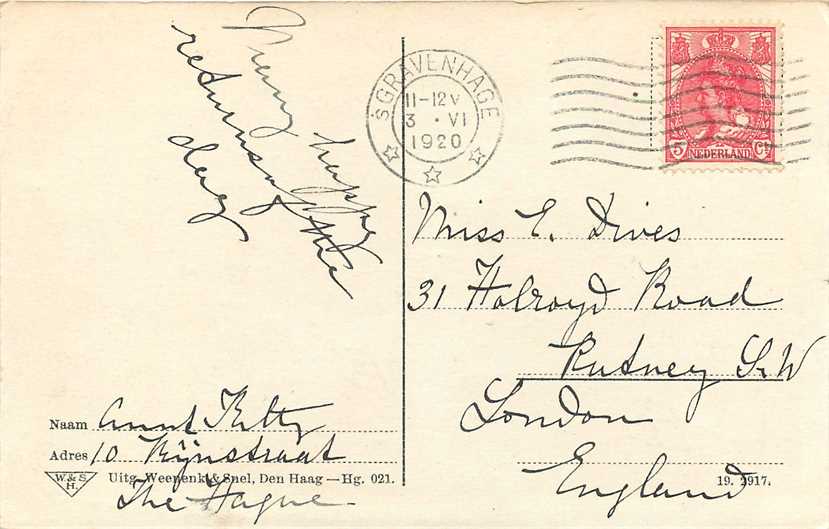 Many happy
returns of the
day
'SGRAVENHAGE
11-12V
3 · VI
1920
5 NEDERLAND Ct
Miss E. Dives
31 Holroyd Road
Putney S.W
London
England
Naam Aunt Kitty
Adres 10 Rijnstraat
The Hague
W. & S.
H.
Uitg. Weenenk & Snel, Den Haag — Hg. 021.
19. 2917.